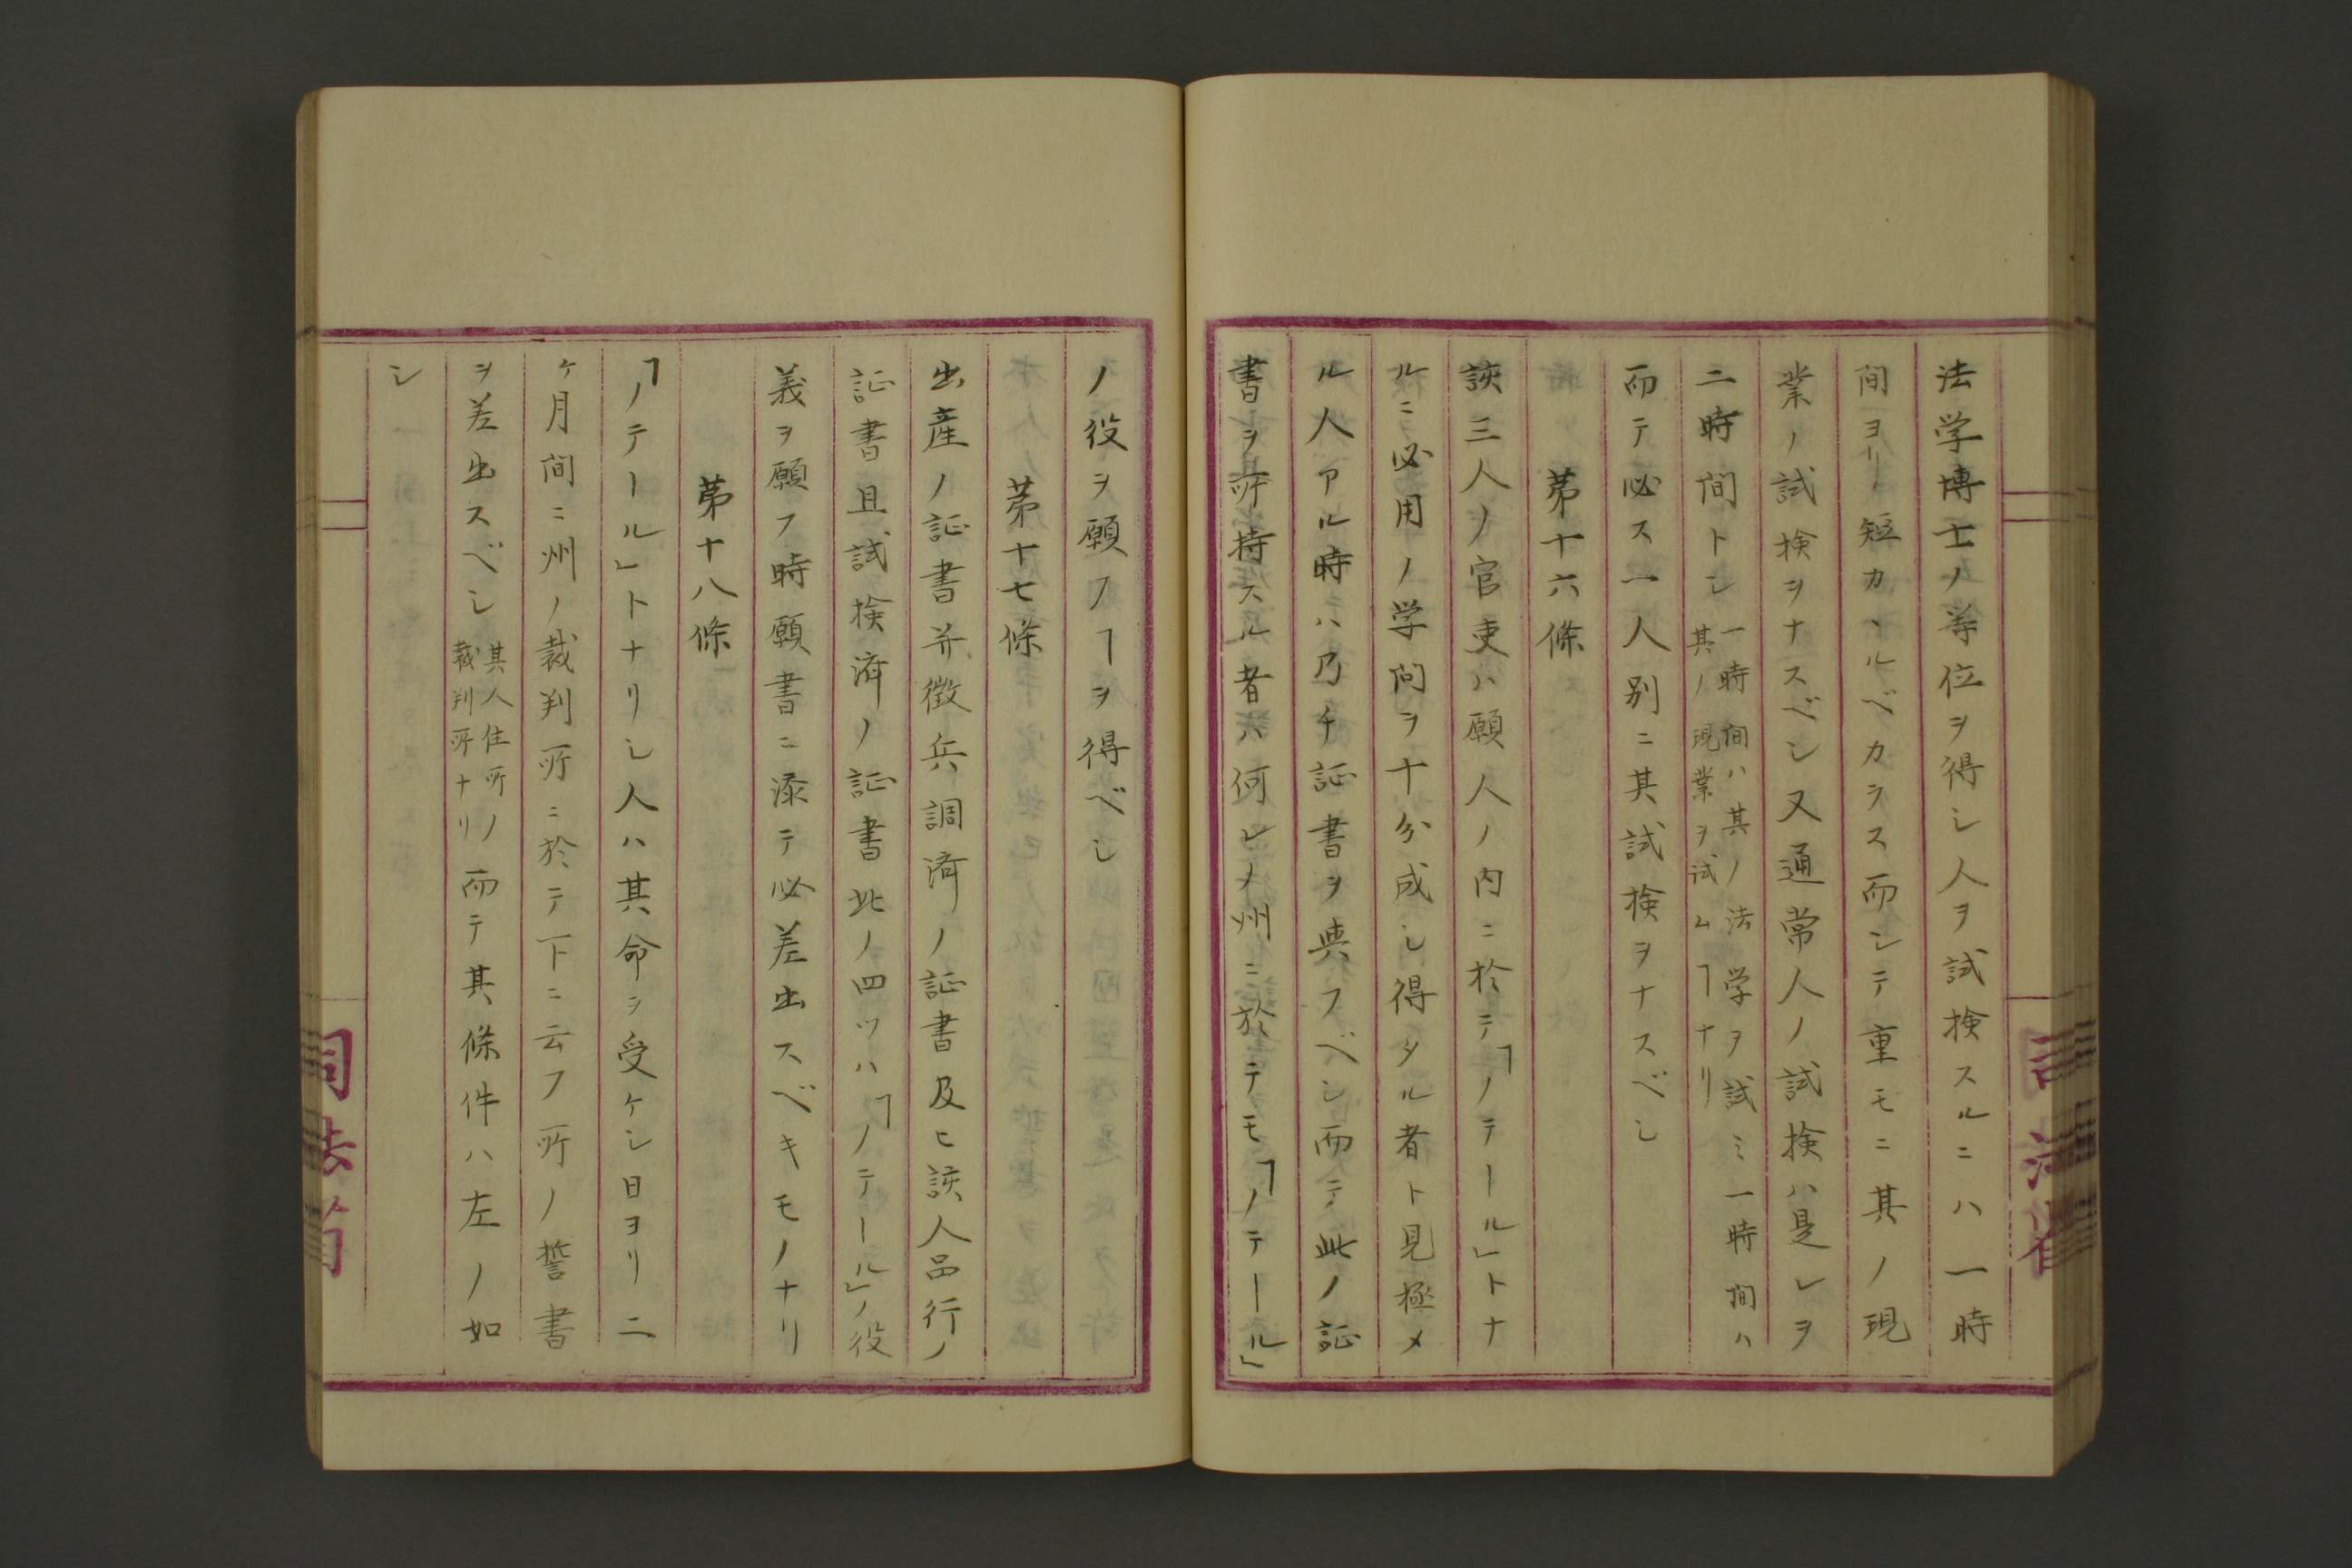 法学博士ノ等位ヲ得シ人ヲ試検スルニハ一時
間ヨリ短カヽルベカラス而シテ重モニ其ノ現
業ノ試検ヲナスベシ又通常人ノ試検ハ是レヲ
二時間トシ一時間ハ其ノ法学ヲ試ミ一時間ハ
其ノ現業ヲ試ムヿナリ
而テ必ス一人別ニ其試検ヲナスベシ
苐十六條
該三人ノ官吏ハ願人ノ内ニ於テ「ノテール」トナ
ルニ必用ノ学問ヲ十分成シ得タル者ト見極メ
ル人アル時ハ乃チ証書ヲ與フベシ而テ此ノ証
書ヲ所持スル者ハ何レノ州ニ於テモ「ノテール」
ノ役ヲ願フヿヲ得ベシ
苐十七條
出産ノ証書并徴兵調済ノ証書及ヒ該人品行ノ
証書且試検済ノ証書此ノ四ツハ「ノテール」ノ役
義ヲ願フ時願書ニ添テ必差出スベキモノナリ
苐十八條
「ノテール」トナリシ人ハ其命ヲ受ケシ日ヨリ二
ケ月間ニ州ノ裁判所ニ於テ下ニ云フ所ノ誓書
ヲ差出スベシ其人住所ノ
裁判所ナリ而テ其條件ハ左ノ如
シ
司法省
司法省